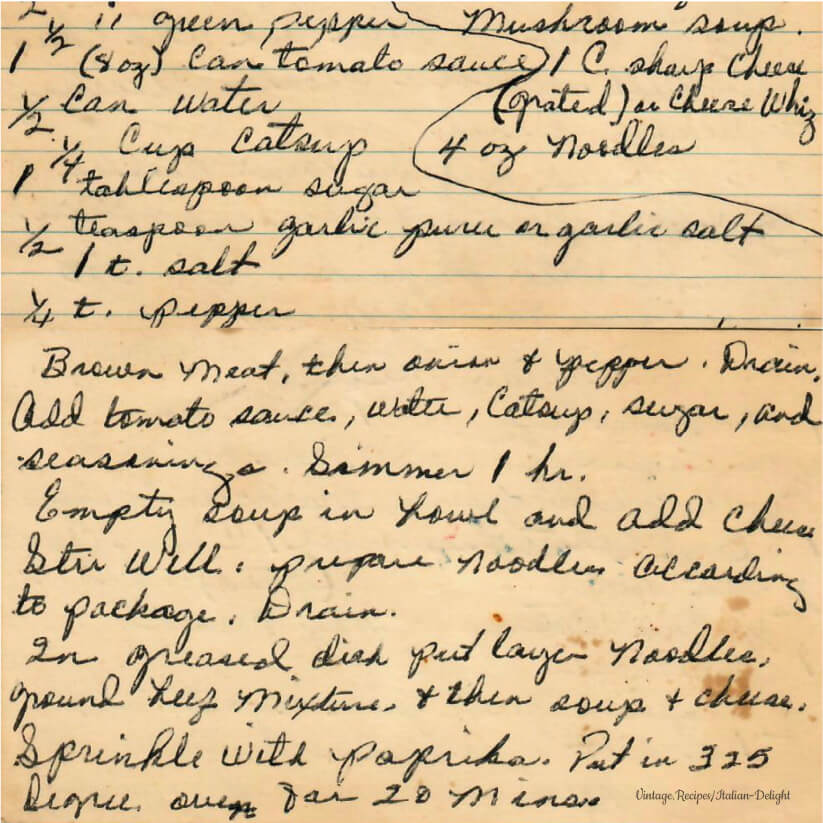 1/2 " green pepper   Mushroom soup.
1 (8 oz) Can tomato sauce   1 C. sharp Cheese
1/2 Can water   (grated) or Cheese Whiz
1/4 Cup Catsup   4 oz Noodles
1 tablespoon sugar
1/2 teaspoon garlic puree or garlic salt
1 t. salt
1/4 t. pepper
Brown Meat, then onion & pepper. Drain.
Add tomato sauce, water, Catsup, sugar, and
seasonings. Simmer 1 hr.
Empty soup in bowl and add cheese
Stir Well. prepare Noodles according
to package. Drain.
In greased dish put layer Noodles,
ground beef Mixture, & then soup & cheese.
Sprinkle with paprika. Put in 325
Degree oven for 20 Mins.
Vintage.Recipes/Italian-Delight